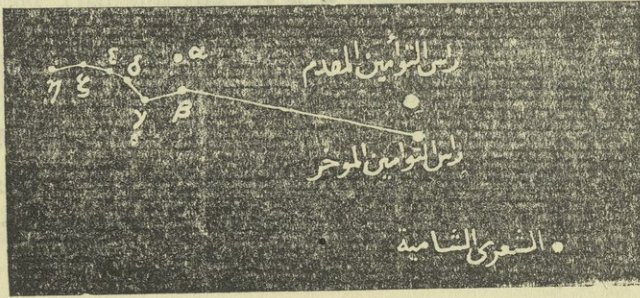 α
رأس التوأمين المقدم
η ζ ε δ γ β
راس التوامين الموخر
الشعرى الشامية